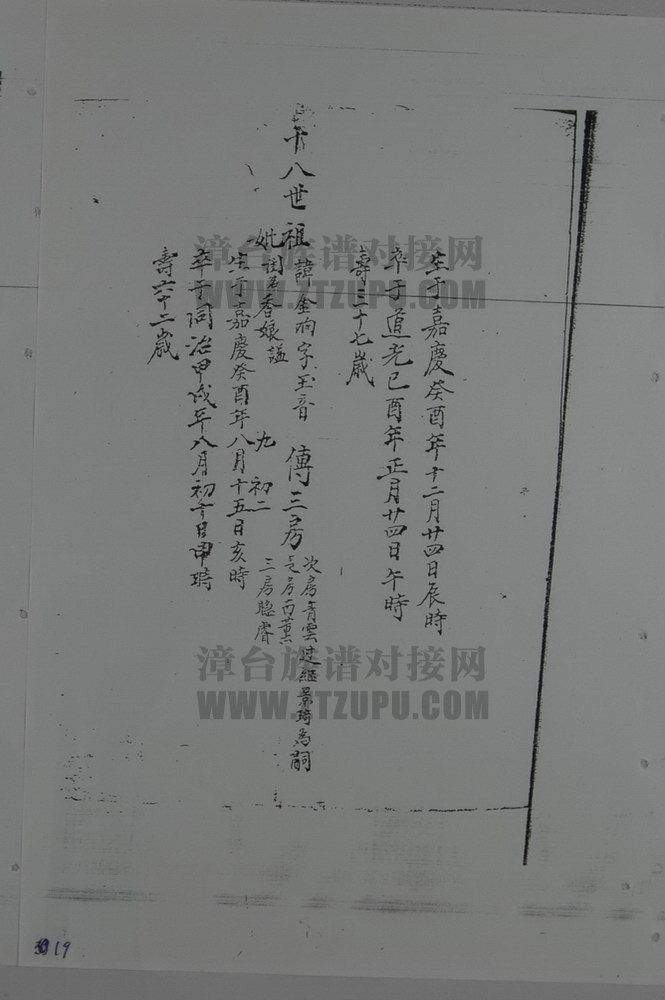 生于嘉慶癸酉年十二月廿四日辰時
卒于道光己酉年正月廿四日午時
壽三十七歲
十八世祖
諱金响字玉音 傳三房
次房青雲過繼景琦為嗣
長房百薰
三房聰睿
妣 閨名香娘謚
九 初二
生于嘉慶癸酉年八月十五日亥時
卒于同治甲戌年八月初十日申時
壽六十二歲
漳台族谱对接网
WWW.ZTZUPU.COM
漳台族谱对接网
WWW.ZTZUPU.COM
19